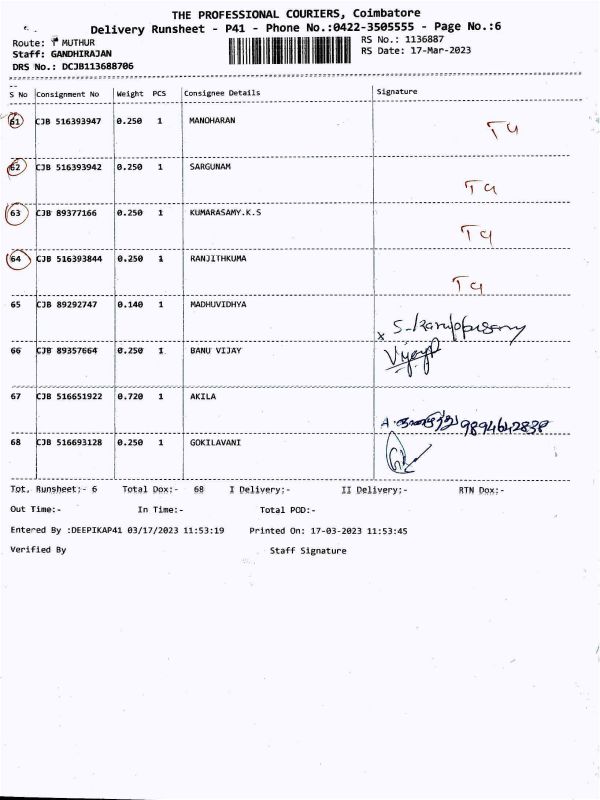 THE PROFESSIONAL COURIERS, Coimbatore
Delivery Runsheet - P41 - Phone No.:0422-3505555 - Page No.:6
Route: MUTHUR RS No.: 1136887
Staff: GANDHIRAJAN RS Date: 17-Mar-2023
DRS No.: DCJB113688706
S No Consignment No Weight PCS Consignee Details Signature
61 CJB 516393947 0.250 1 MANOHARAN
62 CJB 516393942 0.250 1 SARGUNAM
63 CJB 89377166 0.250 1 KUMARASAMY.K.S
64 CJB 516393844 0.250 1 RANJITHKUMA
65 CJB 89292747 0.140 1 MADHUVIDHYA
66 CJB 89357664 0.250 1 BANU VIJAY
67 CJB 516651922 0.720 1 AKILA 9894642838
68 CJB 516693128 0.250 1 GOKILAVANI
Tot. Runsheet:- 6 Total Dox:- 68 I Delivery:- II Delivery:- RTN Dox:-
Out Time:- In Time:- Total POD:-
Entered By :DEEPIKAP41 03/17/2023 11:53:19 Printed On: 17-03-2023 11:53:45
Verified By Staff Signature